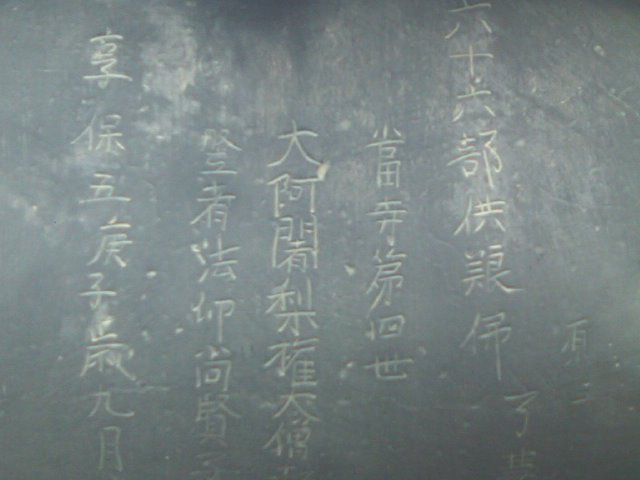 六十六部供養佛
當寺第四世
大阿闍梨権大僧
竪者法印尚賢
享保五庚子歳九月